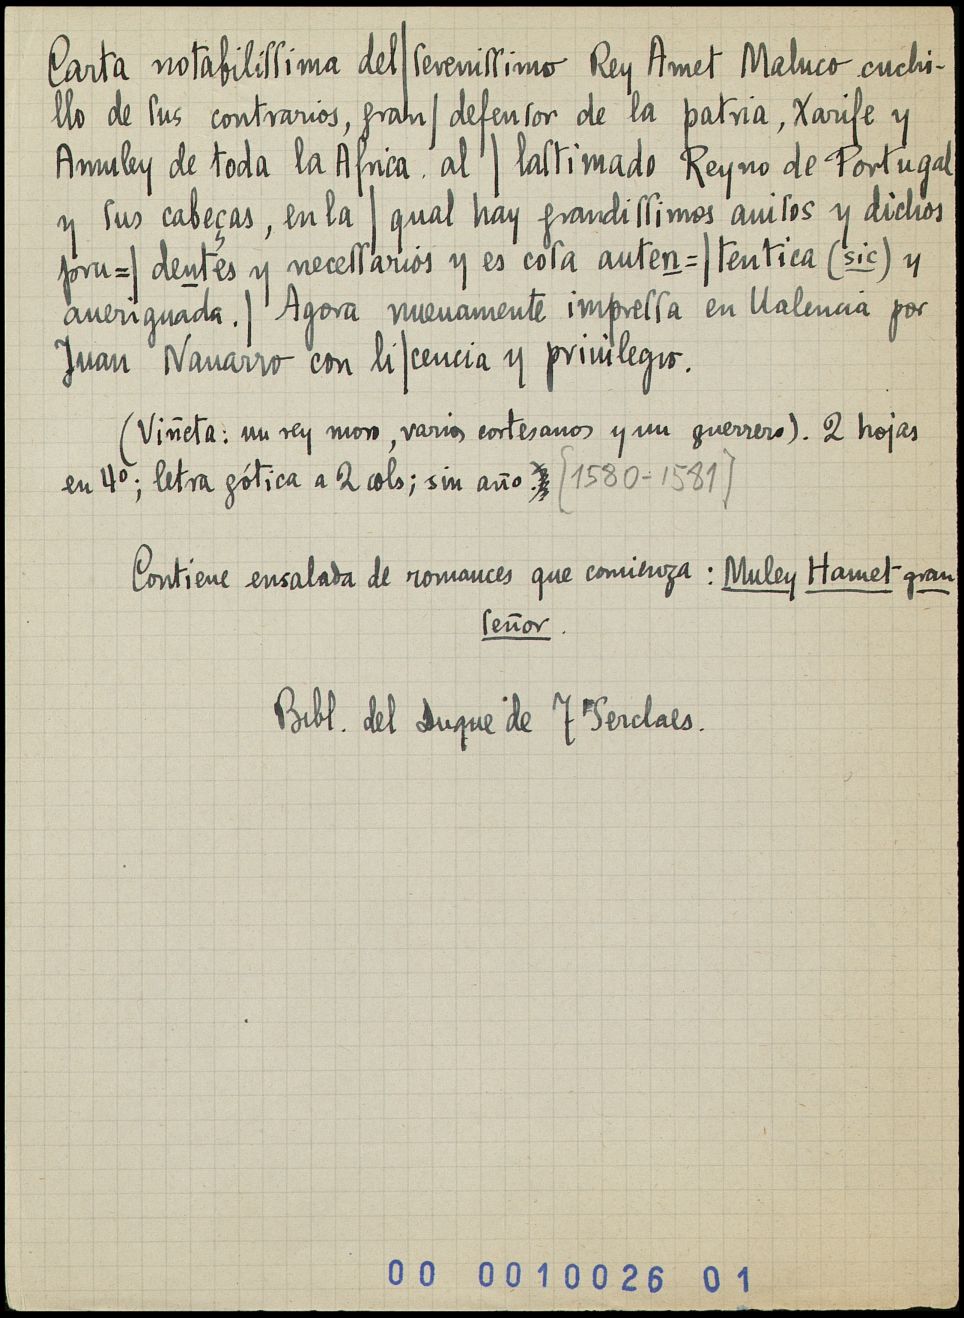 Carta notabiliſſima del | ſereniſſimo Rey Amet Maluco cuchi-
llo de ſus contrarios, gran | defenſor de la patria, Xarife y
Amuley de toda la Africa. al | laſtimado Reyno de Portugal
y ſus cabeças, en la | qual hay grandiſſimos auiſos y dichos
pru= | dentes y neceſſarios y es coſa auten= | tentica (sic) y
aueriguada. | Agora nueuamente impreſſa en Ualencia por
Juan Nauarro con li | cencia y priuilegio.
(Viñeta: un rey moro, varios cortesanos y un guerrero). 2 hojas
en 4º; letra gótica a 2 cols; sin año. [1580-1581]
Contiene ensalada de romances que comienza: Muley Hamet gran
ſeñor.
Bibl. del Duque de T'Serclaes.
00 0010026 01